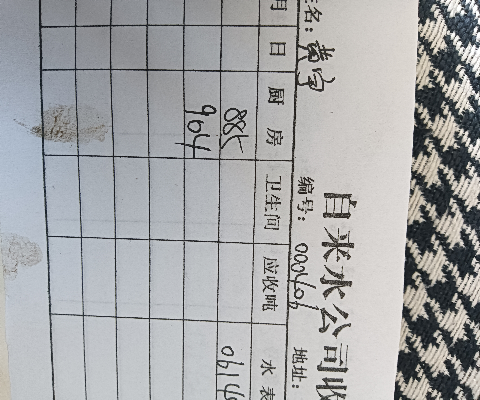 自来水公司收
姓名：黄宇 编号：000606 地址：
月 日 厨房 卫生间 应收吨 水表
885
904